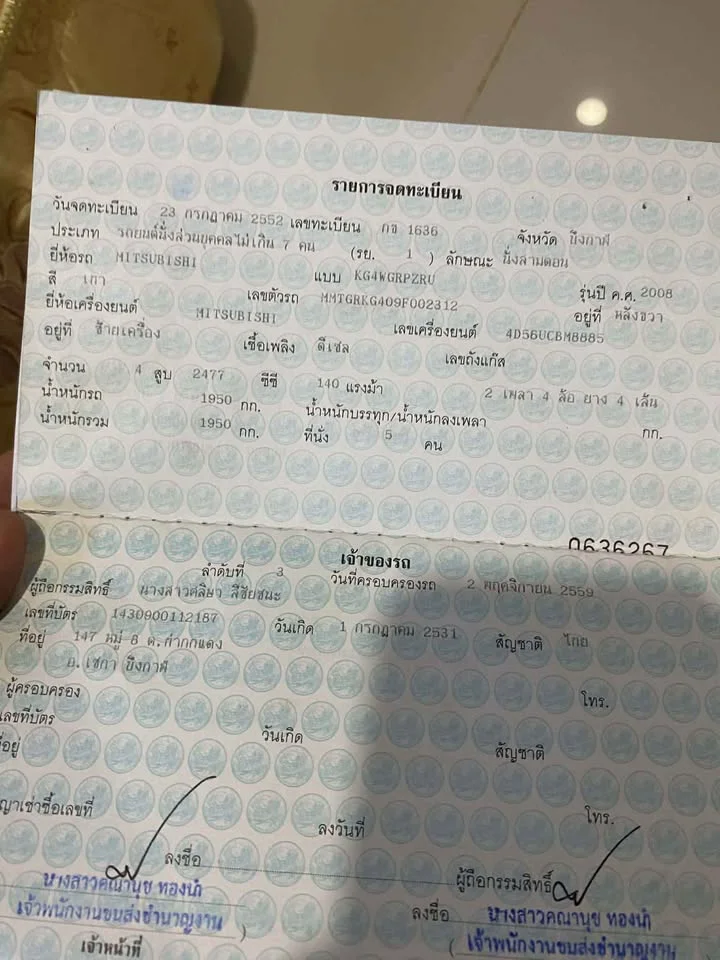 รายการจดทะเบียน
วันจดทะเบียน 23 กรกฎาคม 2552 เลขทะเบียน กข 1636 จังหวัด บึงกาฬ
ประเภท รถยนต์นั่งส่วนบุคคลไม่เกิน 7 คน (รย. 1 ) ลักษณะ นั่งสามตอน
ยี่ห้อรถ MITSUBISHI แบบ KG4WGRPZRU รุ่นปี ค.ศ. 2008
สี เทา เลขตัวรถ MMTGRKG409F002312 อยู่ที่ หลังขวา
ยี่ห้อเครื่องยนต์ MITSUBISHI เลขเครื่องยนต์ 4D56UCBM8885
อยู่ที่ ซ้ายเครื่อง เชื้อเพลิง ดีเซล เลขถังแก๊ส
จำนวน 4 สูบ 2477 ซีซี 140 แรงม้า 2 เพลา 4 ล้อ ยาง 4 เส้น
น้ำหนักรถ 1950 กก. น้ำหนักบรรทุก/น้ำหนักลงเพลา กก.
น้ำหนักรวม 1950 กก. ที่นั่ง 5 คน
0636267
เจ้าของรถ
ลำดับที่ 3 วันที่ครอบครองรถ 2 พฤศจิกายน 2559
ผู้ถือกรรมสิทธิ์ นางสาวศลิษา สีชัยชนะ
เลขที่บัตร 1430900112187 วันเกิด 1 กรกฎาคม 2531 สัญชาติ ไทย
ที่อยู่ 147 หมู่ 8 ต.ท่ากกแดง
อ.เซกา บึงกาฬ
ผู้ครอบครอง โทร.
เลขที่บัตร วันเกิด สัญชาติ
ที่อยู่
ญาเช่าซื้อเลขที่ ลงวันที่ โทร.
ลงชื่อ ผู้ถือกรรมสิทธิ์
นางสาวคณานุช ทองนำ ลงชื่อ นางสาวคณานุช ทองนำ
เจ้าพนักงานขนส่งชำนาญงาน ) ( เจ้าพนักงานขนส่งชำนาญงาน
เจ้าหน้าที่